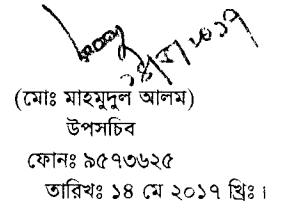 ১৪/৫/২০১৭
(মোঃ মাহমুদুল আলম)
উপসচিব
ফোনঃ ৯৫৭৩৬২৫
তারিখঃ ১৪ মে ২০১৭ খ্রিঃ।